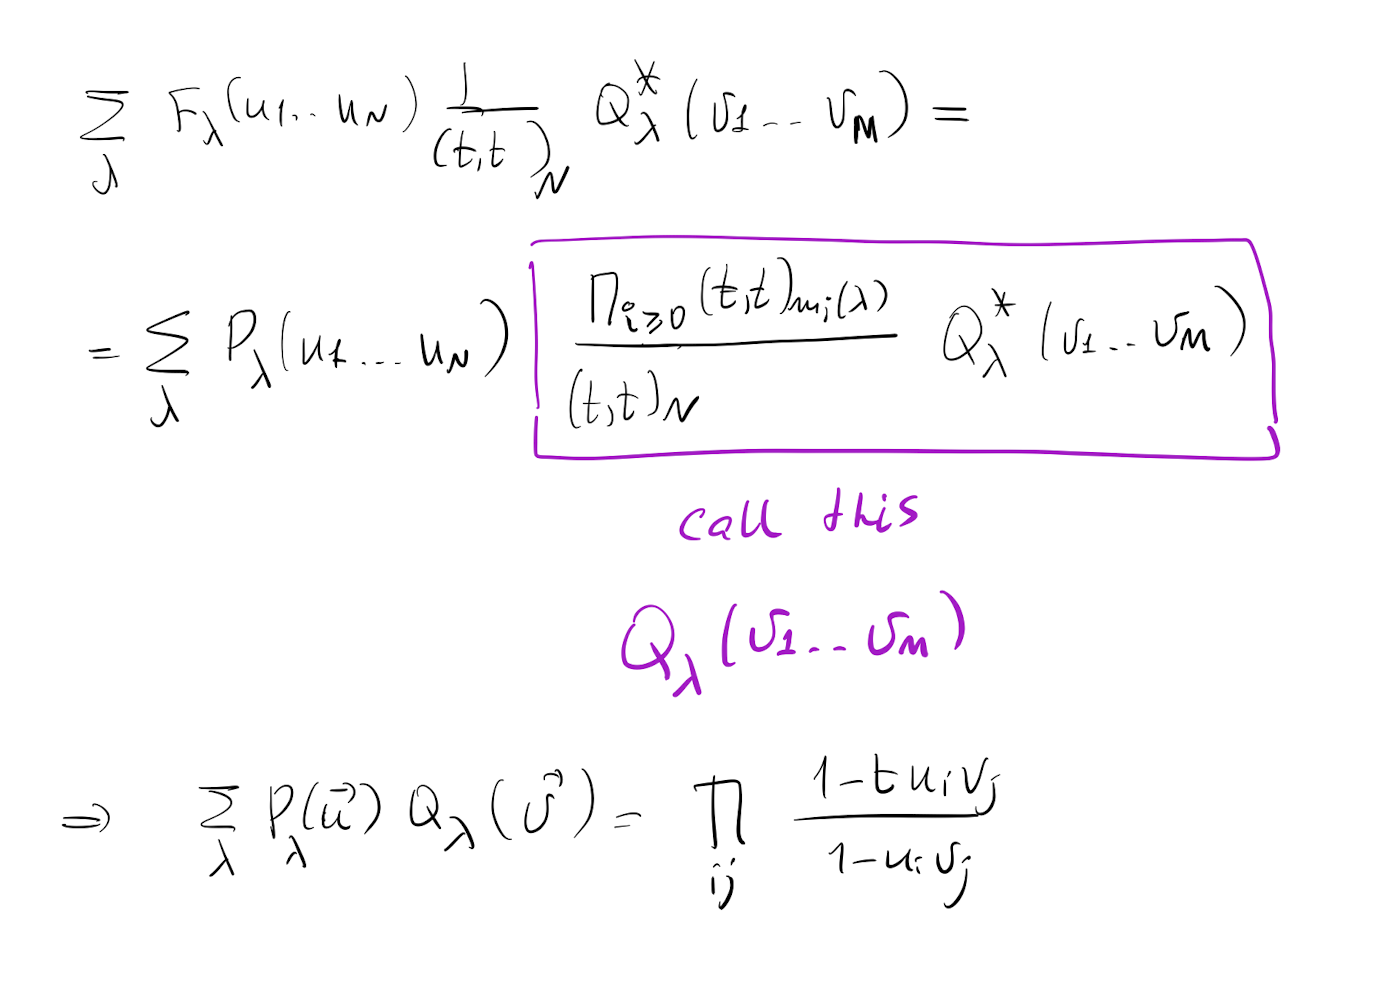 ∑_λ F_λ(u_1.. u_N) 1/(t,t)_N Q*_λ(v_1... v_M) =
= ∑_λ P_λ(u_1... u_N) ∏_{i≥0} (t,t)_{m_i(λ)} / (t,t)_N Q*_λ(v_1.. v_M)
call this
Q_λ(v_1... v_M)
⇒ ∑_λ P_λ(u⃗) Q_λ(v⃗) = ∏_{ij} (1-t u_i v_j)/(1-u_i v_j)